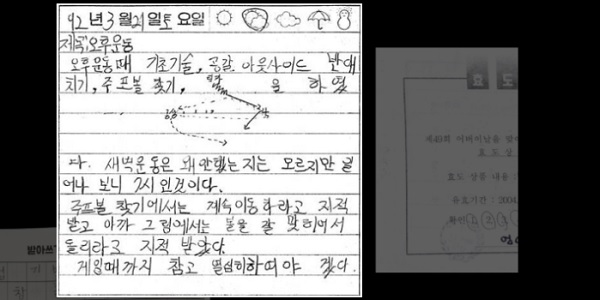 92년 3월 21일 토 요일
제목 오후운동
오후운동때 기초기술, 공갈 아웃사이드 반대
치기, 주프볼 찾기, 을 하 였
다. 새벽운동은 왜 안했는지는 모르지만 일
어나 보니 7시 인것이다.
주프볼 찾기에서는 계속이동하라고 지적
받고 아까 그림에서는 볼을 잘 맞히어서
돌리라고 지적 받았다
게임때까지 참고 열심히하여야 겠다.
효 도
효 도 상
효도상 종류 :
유효기간 : 2004.
받아쓰기